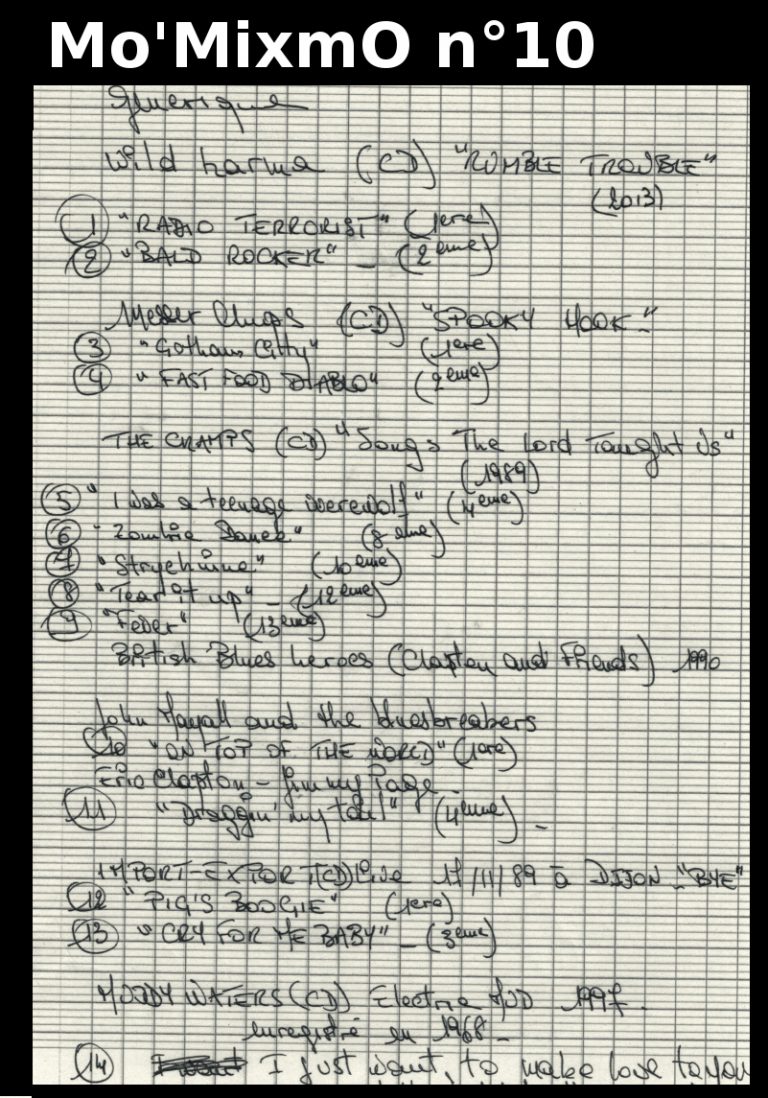 Mo'MixmO n°10
Générique
Wild karma (CD) "RUMBLE TROUBLE"
(2013)
1 "RADIO TERRORIST" (1ere)
2 "BALD ROCKER" _ (2eme)
Messer Chups (CD) "SPOOKY HOOK _"
3 "Gotham City" (1ere)
4 "FAST FOOD DIABLO" (2eme)
THE CRAMPS (CD) "Songs The Lord Taught Us"
(1989)
5 "I was a teenage werewolf" (4eme)
6 "Zombie Dance" (8eme)
7 "Strychnine" (10eme)
8 "Tear it up" _ (12eme)
9 "Fever" (13eme)
British Blues heroes (Clapton and Friends) 1990
John Mayall and the bluesbreakers
10 "ON TOP OF THE WORLD" (1ere)
Eric Clapton - Jimmy Page _
11 "Draggin' my tail" (4eme) _
IMPORT-EXPORT (CD) Live 17/11/89 à DIJON _ "BYE"
12 "PIG'S BOOGIE" (1ere)
13 "CRY FOR ME BABY" _ (3eme)
MUDDY WATERS (CD) Electric MUD 1997 _
enregistré en 1968 _
14 I just want to make love to you